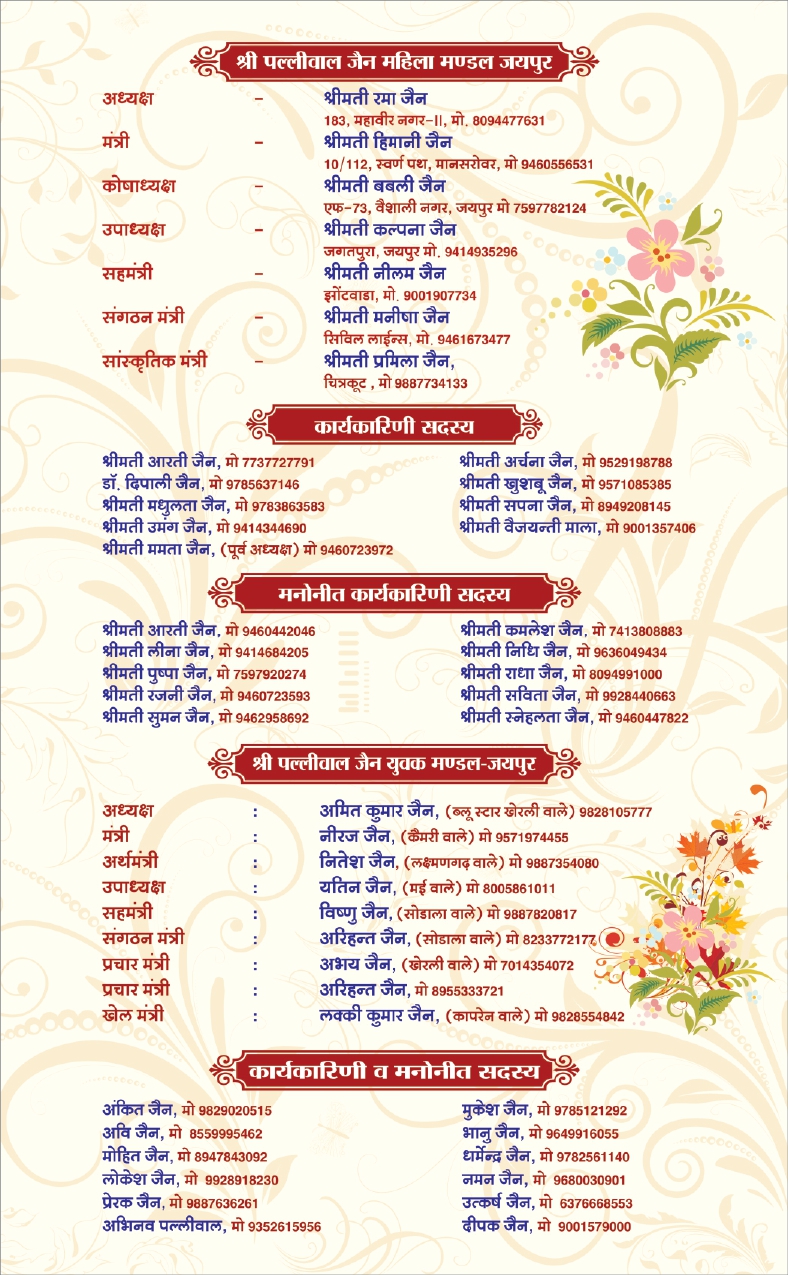 श्री पल्लीवाल जैन महिला मण्डल जयपुर
अध्यक्ष – श्रीमती रमा जैन
183, महावीर नगर-II, मो. 8094477631
मंत्री – श्रीमती हिमानी जैन
10/112, स्वर्ण पथ, मानसरोवर, मो 9460556531
कोषाध्यक्ष – श्रीमती बबली जैन
एफ-73, वैशाली नगर, जयपुर मो 7597782124
उपाध्यक्ष – श्रीमती कल्पना जैन
जगतपुरा, जयपुर मो. 9414935296
सहमंत्री – श्रीमती नीलम जैन
झोंटवाडा, मो. 9001907734
संगठन मंत्री – श्रीमती मनीषा जैन
सिविल लाईन्स, मो. 9461673477
सांस्कृतिक मंत्री – श्रीमती प्रमिला जैन,
चित्रकूट , मो 9887734133
कार्यकारिणी सदस्य
श्रीमती आरती जैन, मो 7737727791 श्रीमती अर्चना जैन, मो 9529198788
डॉ. दिपाली जैन, मो 9785637146 श्रीमती खुशबू जैन, मो 9571085385
श्रीमती मधुलता जैन, मो 9783863583 श्रीमती सपना जैन, मो 8949208145
श्रीमती उमंग जैन, मो 9414344690 श्रीमती वैजयन्ती माला, मो 9001357406
श्रीमती ममता जैन, (पूर्व अध्यक्ष) मो 9460723972
मनोनीत कार्यकारिणी सदस्य
श्रीमती आरती जैन, मो 9460442046 श्रीमती कमलेश जैन, मो 7413808883
श्रीमती लीना जैन, मो 9414684205 श्रीमती निधि जैन, मो 9636049434
श्रीमती पुष्पा जैन, मो 7597920274 श्रीमती राधा जैन, मो 8094991000
श्रीमती रजनी जैन, मो 9460723593 श्रीमती सविता जैन, मो 9928440663
श्रीमती सुमन जैन, मो 9462958692 श्रीमती स्नेहलता जैन, मो 9460447822
श्री पल्लीवाल जैन युवक मण्डल-जयपुर
अध्यक्ष : अमित कुमार जैन, (ब्लू स्टार खेरली वाले) 9828105777
मंत्री : नीरज जैन, (कैमरी वाले) मो 9571974455
अर्थमंत्री : नितेश जैन, (लक्ष्मणगढ़ वाले) मो 9887354080
उपाध्यक्ष : यतिन जैन, (मई वाले) मो 8005861011
सहमंत्री : विष्णु जैन, (सोडाला वाले) मो 9887820817
संगठन मंत्री : अरिहन्त जैन, (सोडाला वाले) मो 8233772177
प्रचार मंत्री : अभय जैन, (खेरली वाले) मो 7014354072
प्रचार मंत्री : अरिहन्त जैन, मो 8955333721
खेल मंत्री : लक्की कुमार जैन, (कापरेन वाले) मो 9828554842
कार्यकारिणी व मनोनीत सदस्य
अंकित जैन, मो 9829020515 मुकेश जैन, मो 9785121292
अवि जैन, मो 8559995462 भानु जैन, मो 9649916055
मोहित जैन, मो 8947843092 धर्मेन्द्र जैन, मो 9782561140
लोकेश जैन, मो 9928918230 नमन जैन, मो 9680030901
प्रेरक जैन, मो 9887636261 उत्कर्ष जैन, मो 6376668553
अभिनव पल्लीवाल, मो 9352615956 दीपक जैन, मो 9001579000